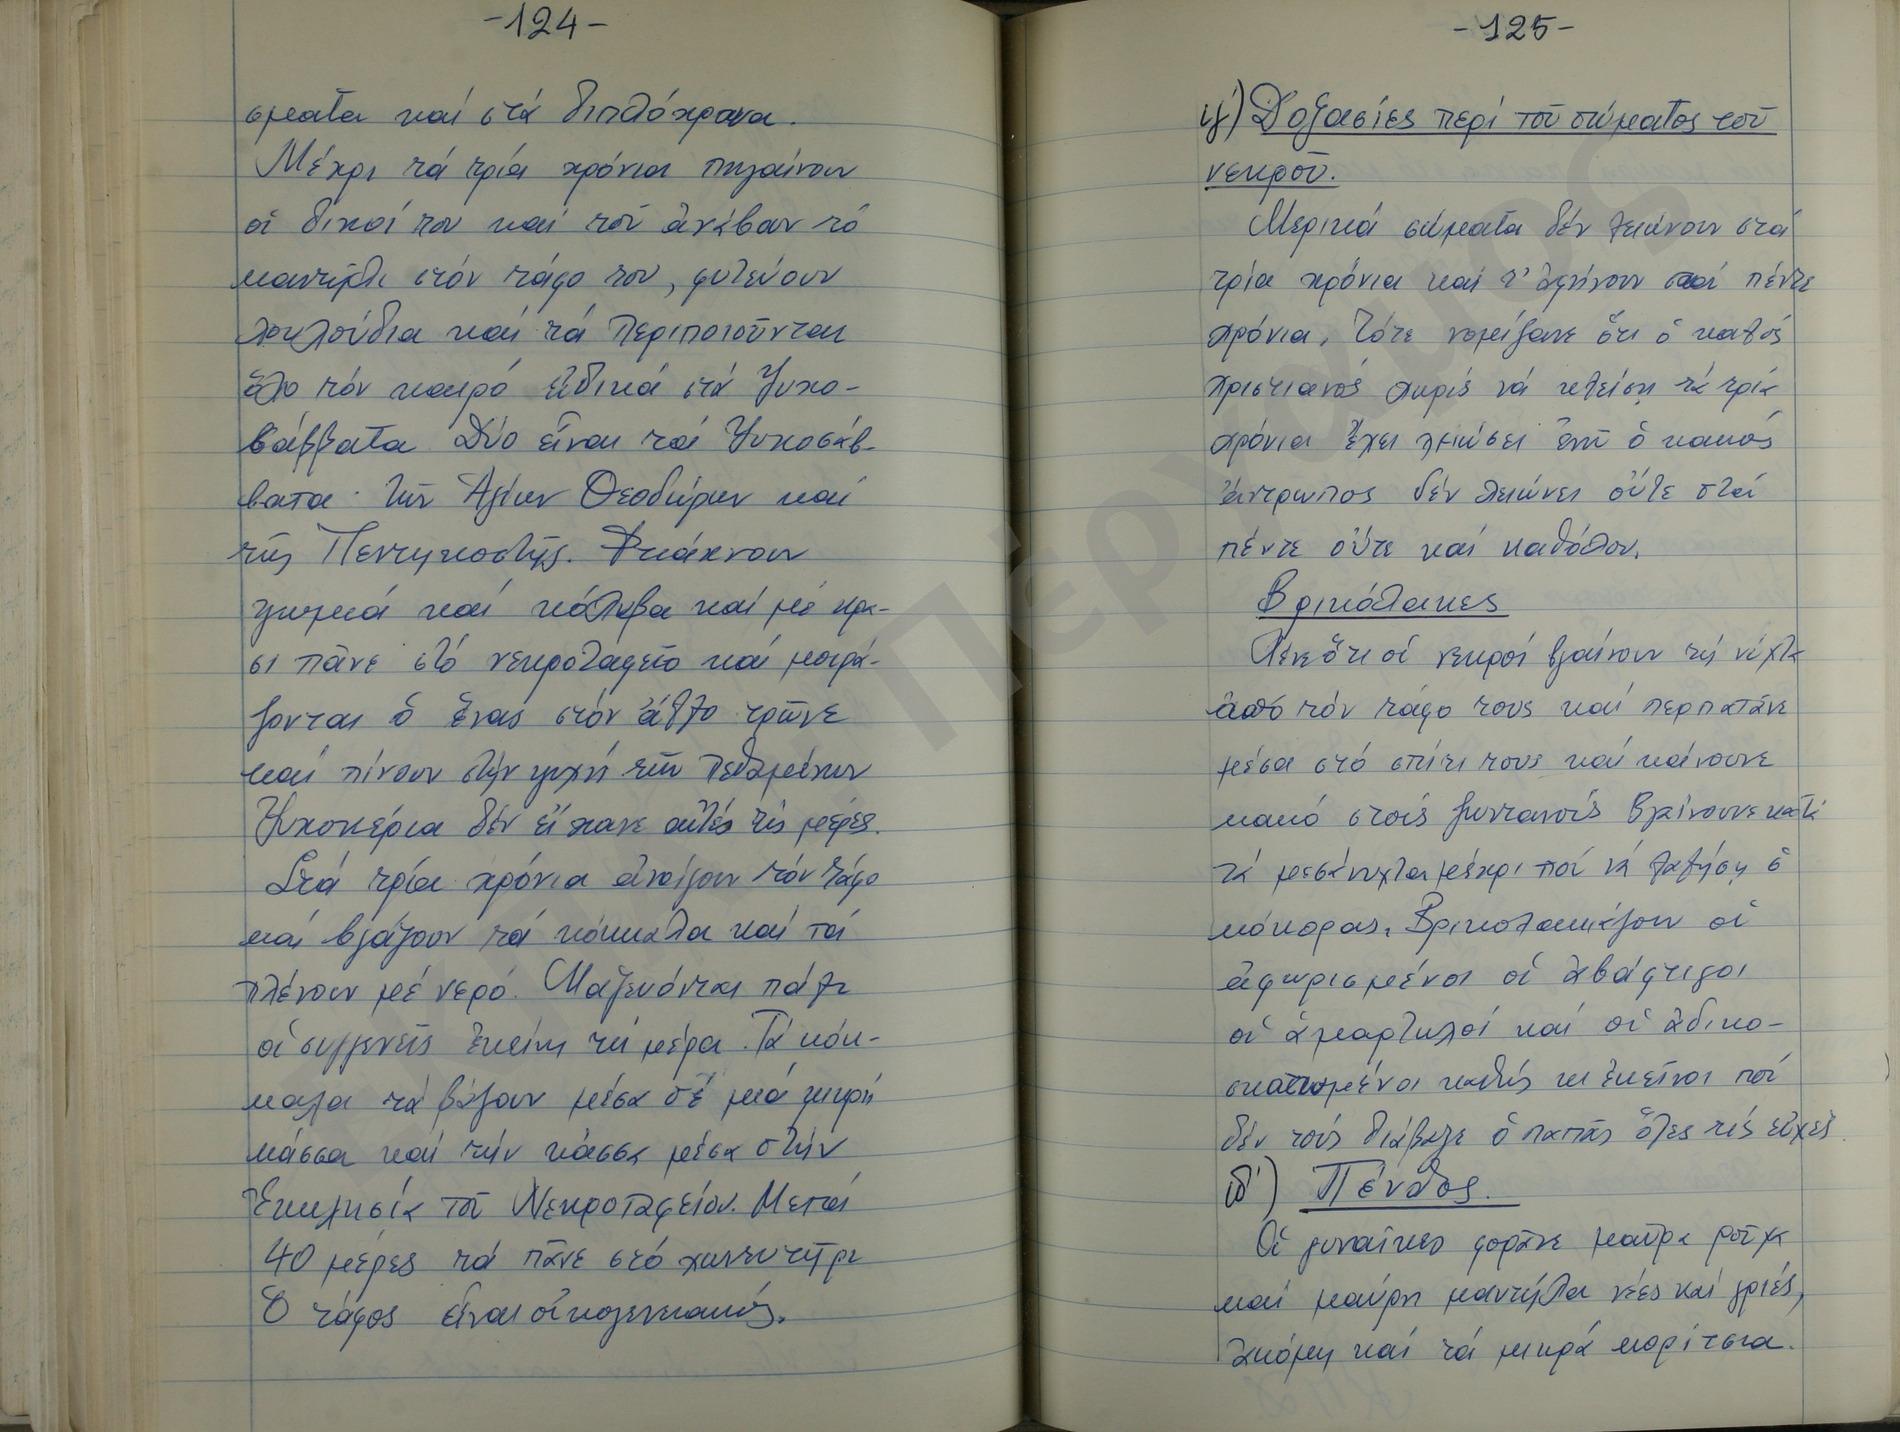 -124-
σματα καί στά διπλόχρονα.
Μέχρι τά τρία χρόνια πηγαίνουν
οἱ δικοί του καί τοῦ ἀνάβουν τό
καντήλι στόν τάφο του, φυτεύουν
λουλούδια καί τά περιποιοῦνται
ὅλο τόν καιρό εἰδικά στά Ψυχο-
σάββατα. Δύο εἶναι τά Ψυχοσάβ-
βατα· τῶν Ἁγίων Θεοδώρων καί
τῆς Πεντηκοστῆς. Φτιάχνουν
ψωμιά καί κόλυβα καί μέ κρα-
σι πᾶνε στό νεκροταφεῖο καί μοιρά-
ζονται ὁ ἕνας στόν ἄλλο τρῶνε
καί πίνουν στήν ψυχή τῶν πεθαμένων
Ψυχοκέρια δέν εἴχανε αὐτές τίς μέρες.
Στά τρία χρόνια ἀνοίγουν τόν τάφο
καί βγάζουν τά κόκκαλα καί τά
πλένουν μέ νερό. Μαζεύονται πάλι
οἱ συγγενεῖς ἐκείνη τή μέρα. Τά κόκ-
καλα τά βάζουν μέσα σέ μιά μικρή
κάσσα καί τήν κάσσα μέσα στήν
Ἐκκλησία τοῦ Νεκροταφείου. Μετά
40 μέρες τά πᾶνε στό χωνευτήρι
Ὁ τάφος εἶναι οἰκογενειακός.
-125-
ιγ') Δοξασίες περί τοῦ σώματος τοῦ
νεκροῦ.
Μερικά σώματα δέν λειώνουν στά
τρία χρόνια καί τ' ἀφήνουν στά πέντε
χρόνια. Τότε νομίζανε ὅτι ὁ καλός
χριστιανός χωρίς νά κλείση τά τρία
χρόνια ἔχει λειώσει ἐνῶ ὁ κακός
ἄντρωπος δέν λειώνει οὔτε στά
πέντε οὔτε καί καθόλου.
Βρικόλακες
Λένε ὅτι οἱ νεκροί βγαίνουν τή νύχτα
ἀπό τόν τάφο τους καί περπατᾶνε
μέσα στό σπίτι τους καί κάνουνε
κακό στούς ζωντανούς βγαίνουνε κατά
τά μεσάνυχτα μέχρι πού νά λαλήση ὁ
κόκορας. Βρικολακιάζουν οἱ
ἀφωρισμένοι οἱ ἀβάφτιγοι
οἱ ἁμαρτωλοί καί οἱ ἀδικο-
σκοτωμένοι καθώς κι ἐκεῖνοι πού
δέν τούς διάβαζε ὁ παπάς ὅλες τίς εὐχές.
ιδ') Πένθος.
Οἱ γυναῖκες φορᾶνε μαῦρα ροῦχα
καί μαύρη μαντήλα νέες καί γριές,
ἀκόμη καί τά μικρά κορίτσια.